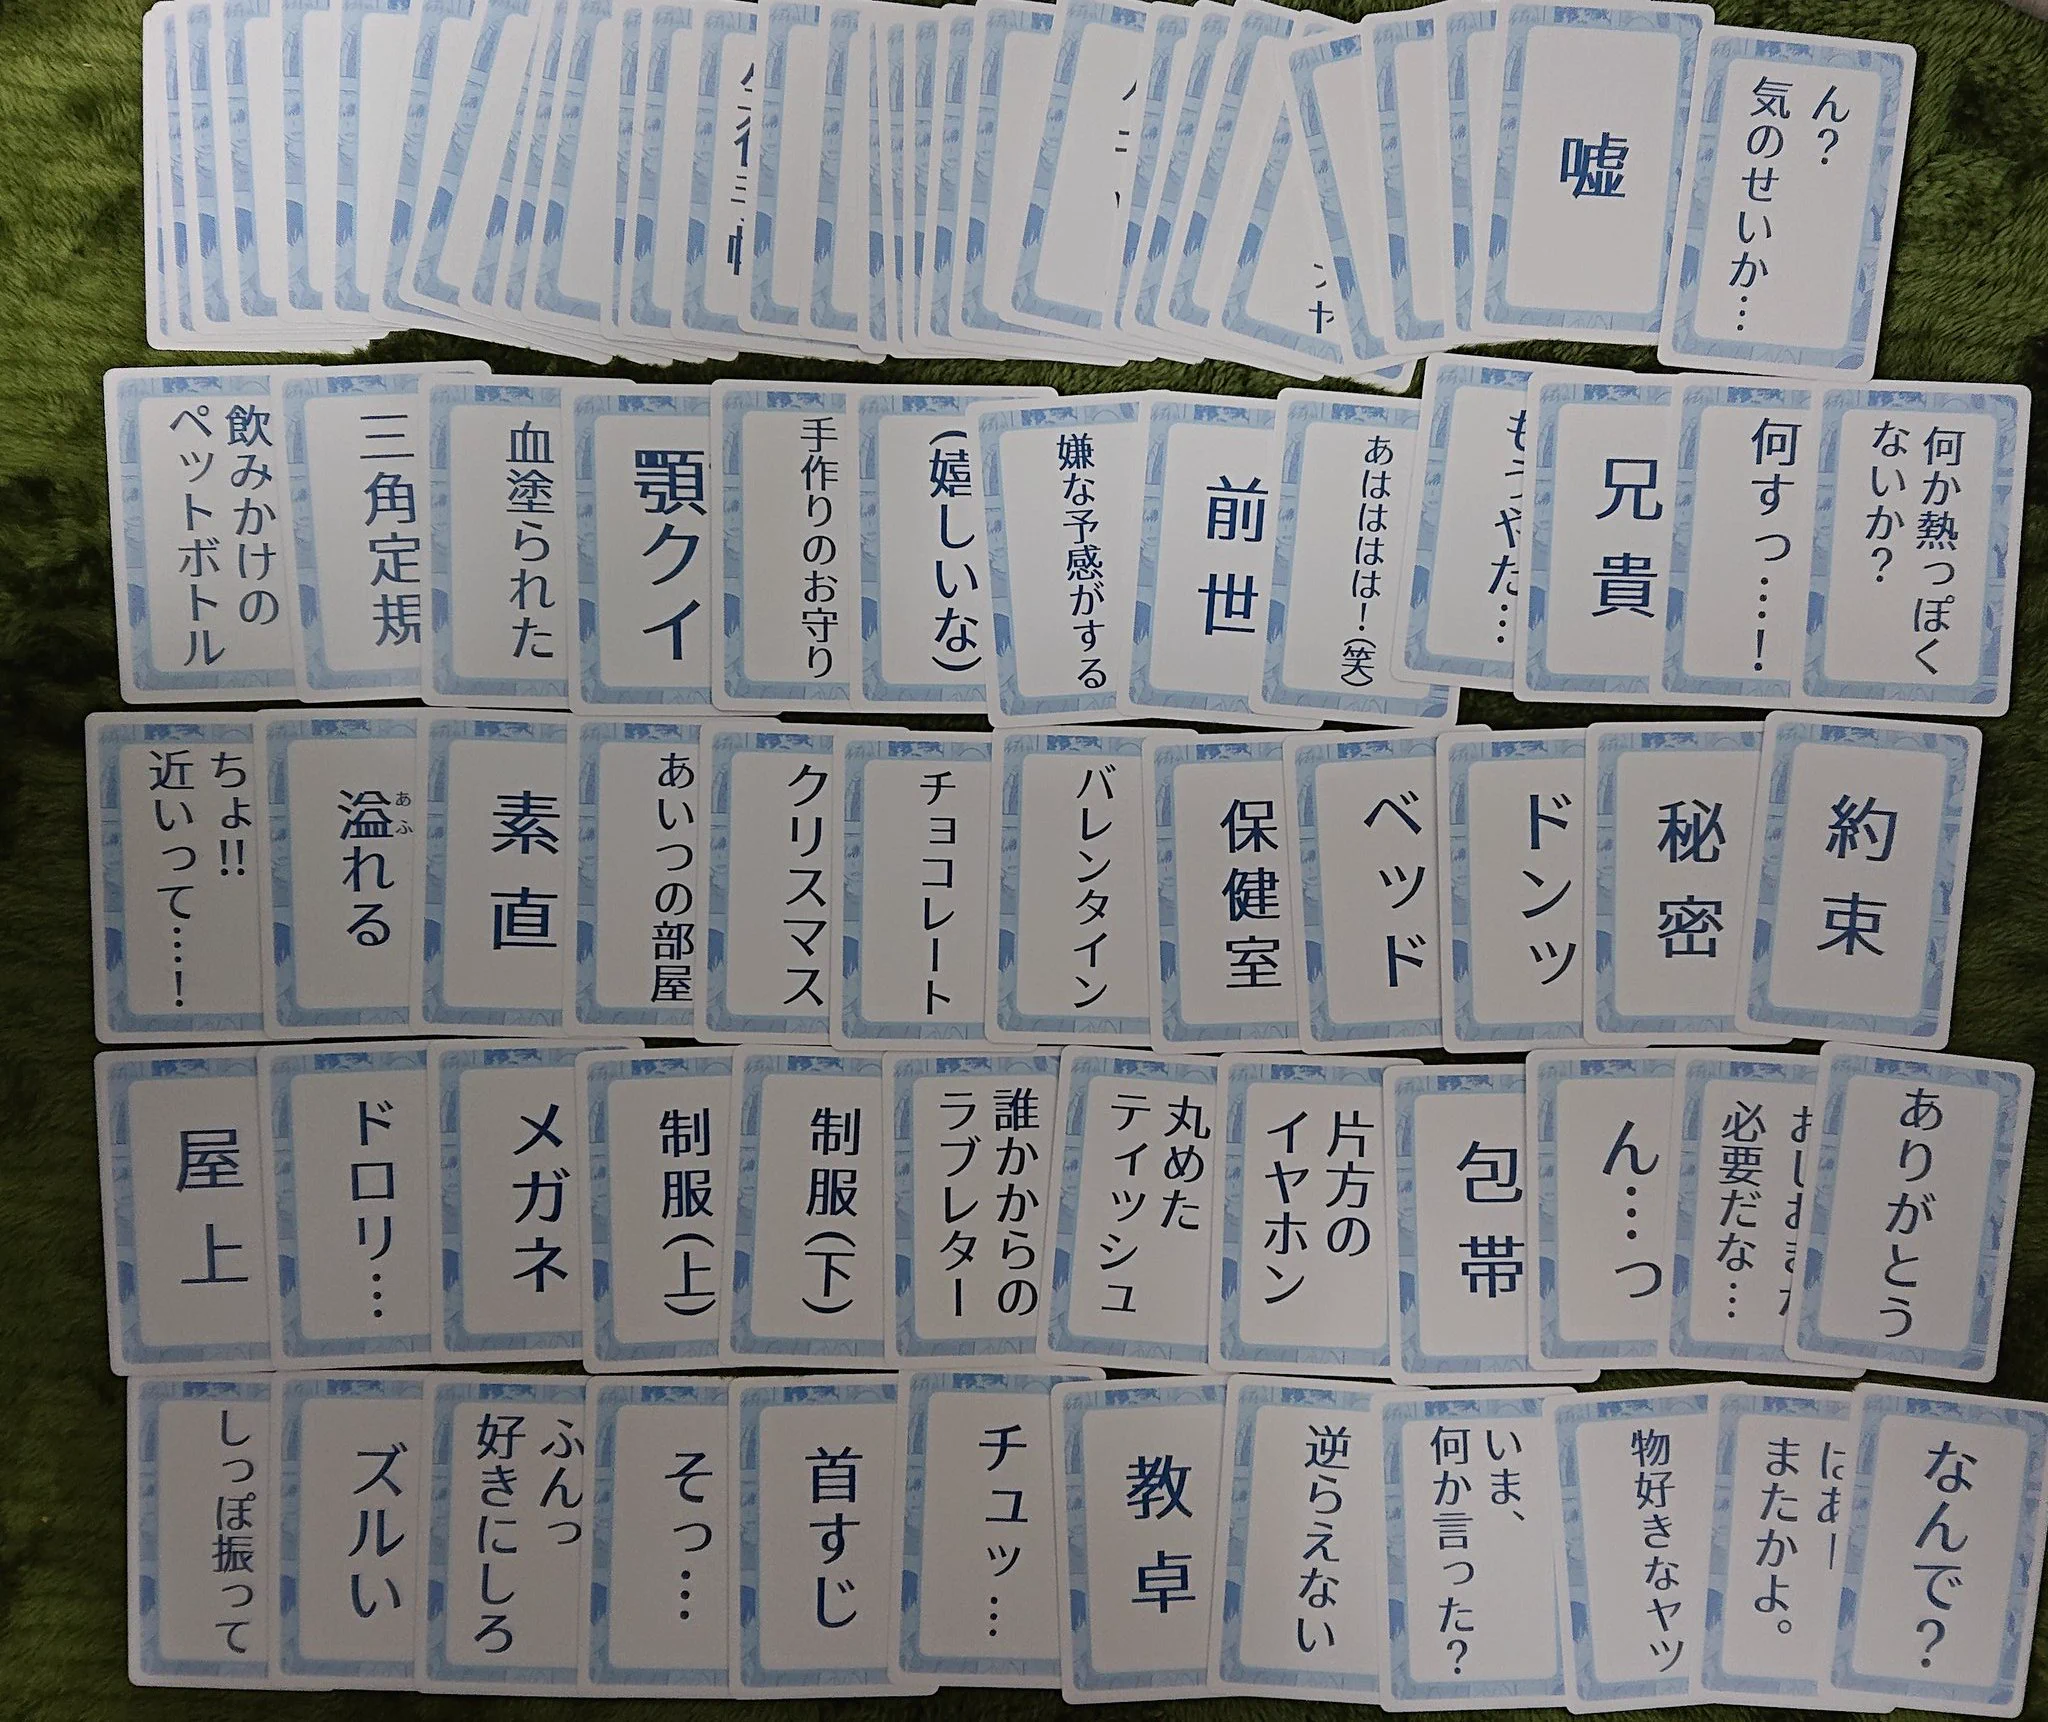 嘘
ん？
気のせいか…
飲みかけの
ペットボトル
三角定規
血塗られた
顎クイ
手作りのお守り
(嬉しいな)
嫌な予感がする
前世
あはははは！(笑)
兄貴
何すっ…！
何か熱っぽく
ないか？
ちょ!!
近いって…！
溢れる
あふ
素直
あいつの部屋
クリスマス
チョコレート
バレンタイン
保健室
ベッド
ドンッ
秘密
約束
屋上
ドロリ…
メガネ
制服(上)
制服(下)
誰かからの
ラブレター
丸めた
ティッシュ
片方の
イヤホン
包帯
ん…っ
必要だな…
ありがとう
しっぽ振って
ズルい
ふんっ
好きにしろ
そっ…
首すじ
チュッ…
教卓
逆らえない
いま、
何か言った？
物好きなヤツ
はあー
またかよ。
なんで？